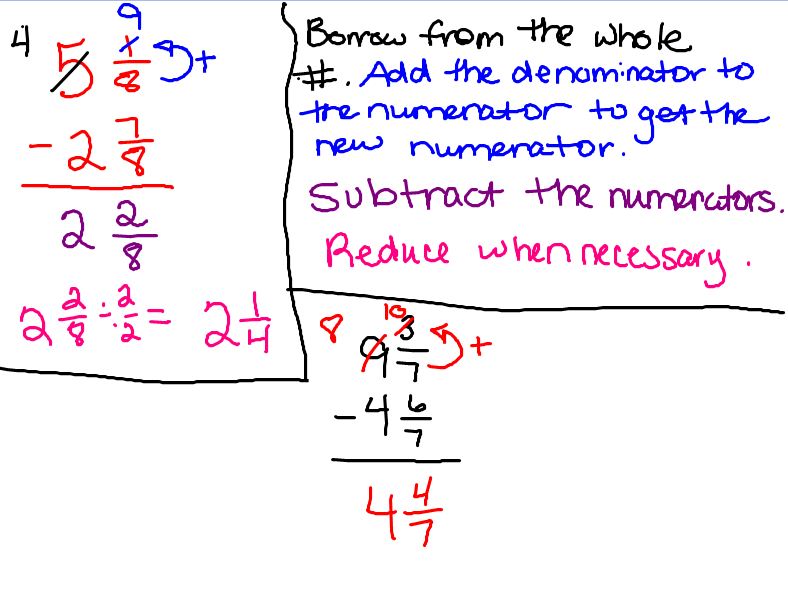 4 5 1/8 9 +
- 2 7/8
2 2/8
2 2/8 ÷ 2/2 = 2 1/4
Borrow from the whole
#. Add the denominator to
the numerator to get the
new numerator.
Subtract the numerators.
Reduce when necessary.
8 9 10 3/7 +
- 4 6/7
4 4/7